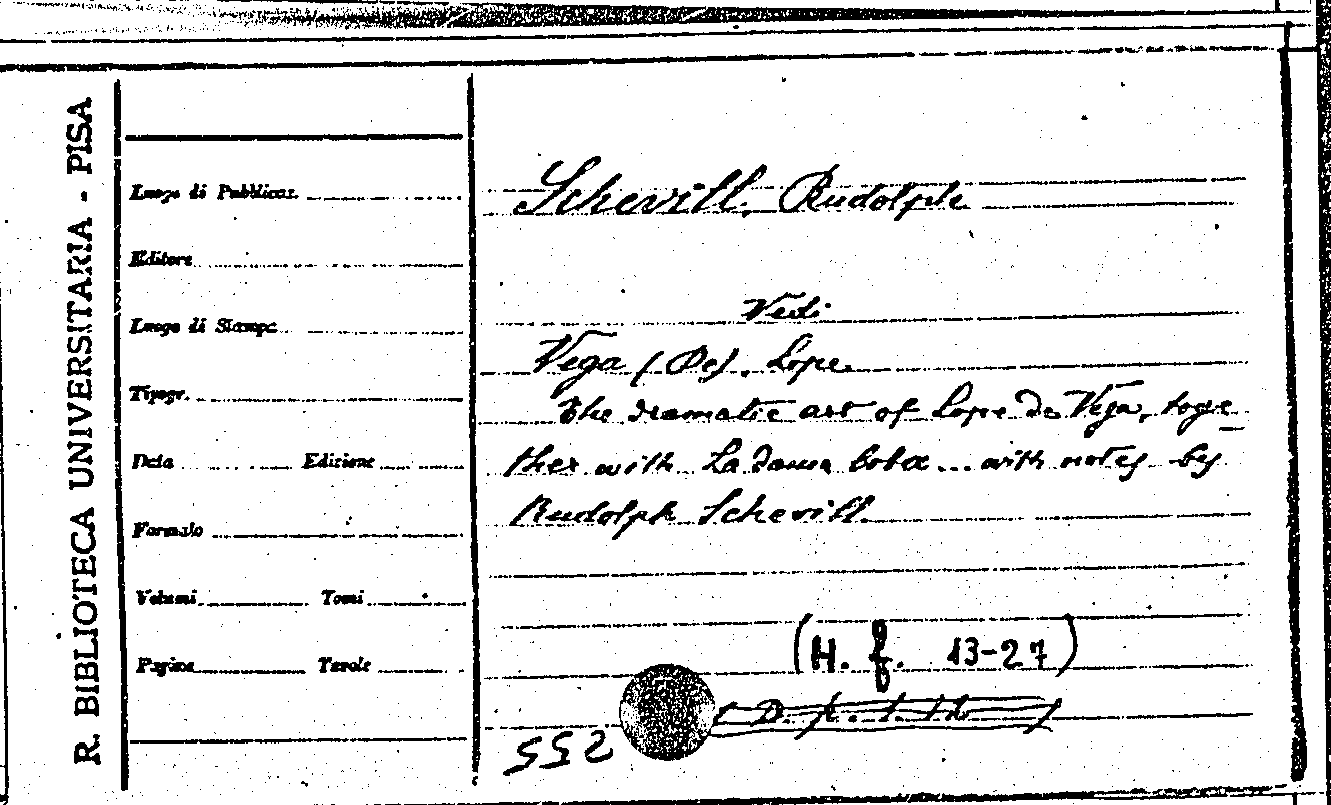 R. BIBLIOTECA UNIVERSITARIA - PISA
Luogo di Pubblicaz.
Editore
Luogo di Stampa
Tipogr.
Data Edizione
Formato
Volumi Tomi
Pagine Tavole
Schevill, Rudolph
Vedi
Vega (De), Lope.
The dramatic art of Lope de Vega, toge
ther with La dama boba... with notes by
Rudolph Schevill.
(H. f. 13-27)
552